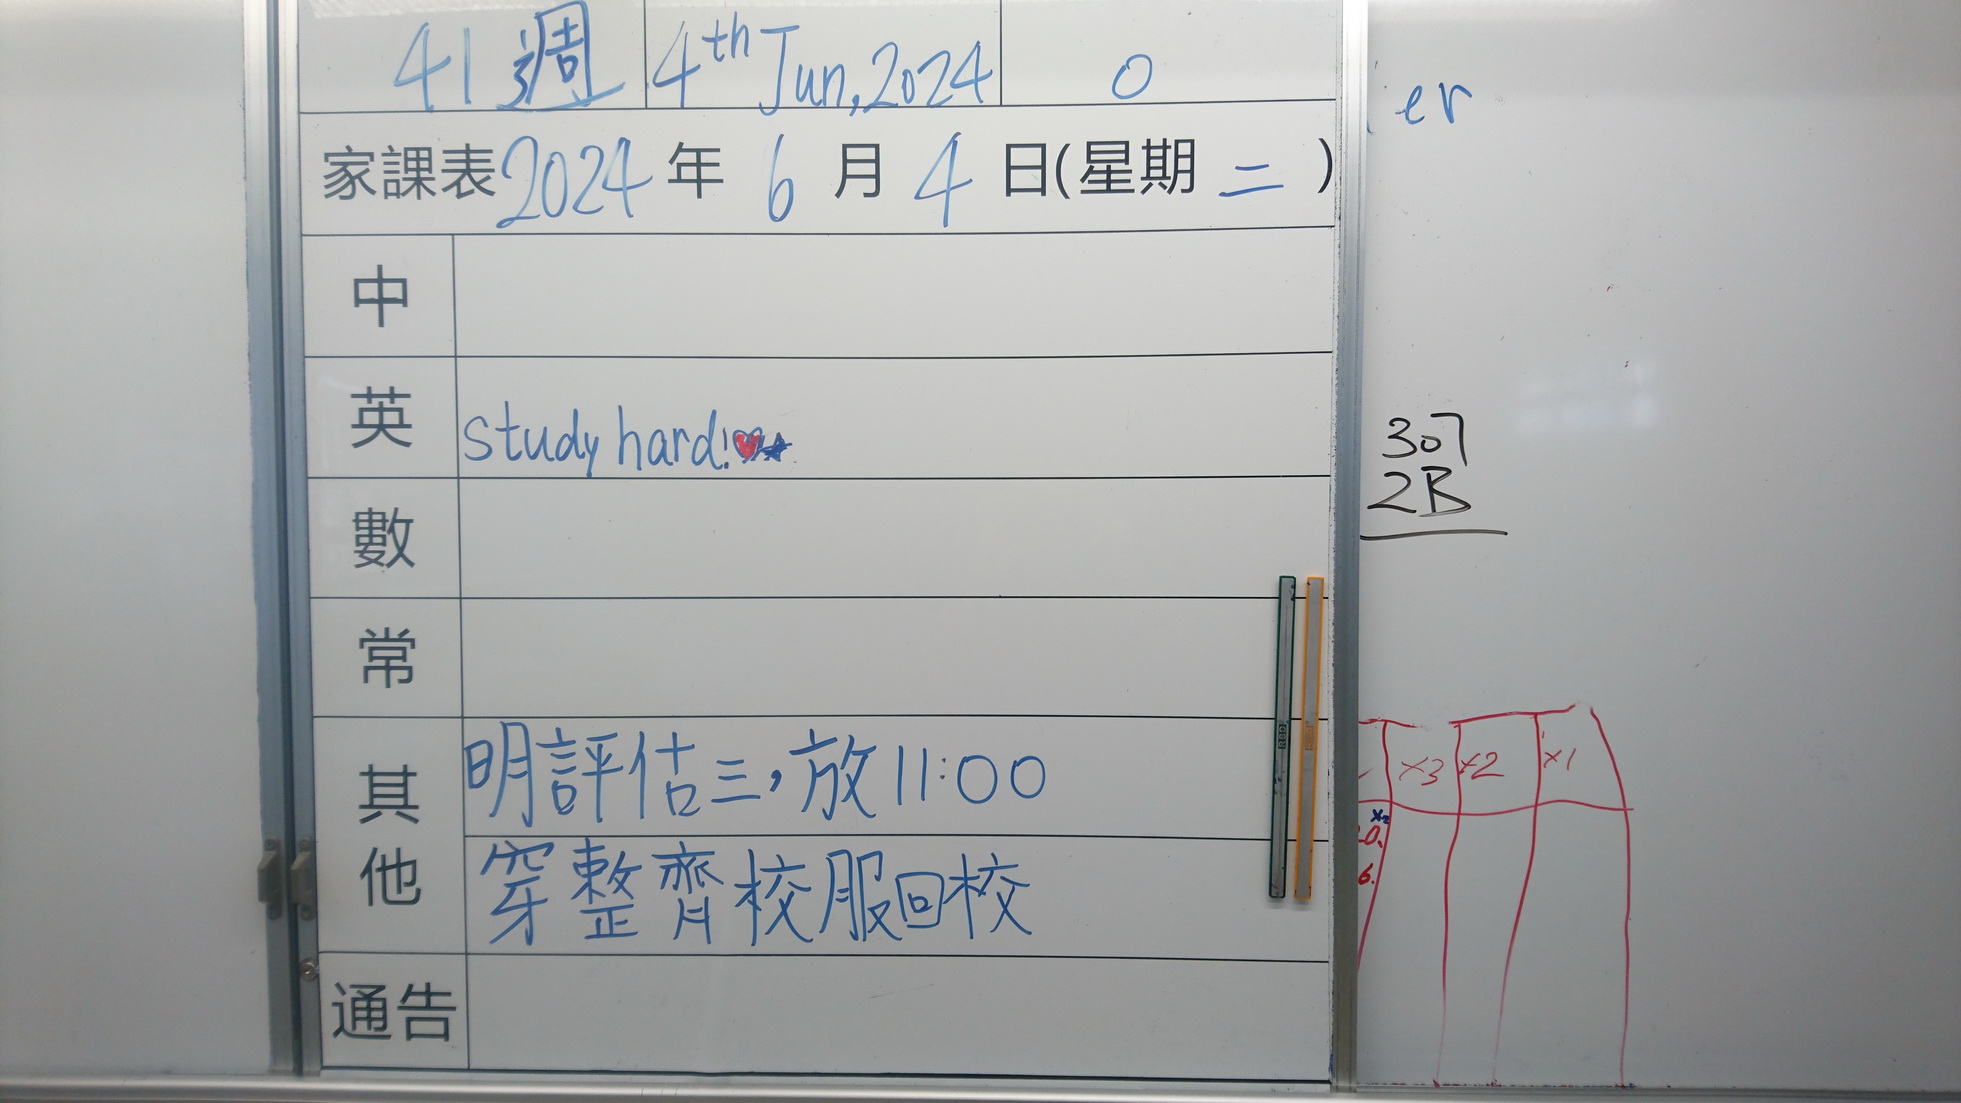 41 週 4th Jun, 2024 0
家課表 2024 年 6 月 4 日(星期 二 )
中
英 study hard!
數
常
其他 明評估三，放11:00
穿整齊校服回校
通告
er
307
2B
x3 x2 x1
x2
0.
6.